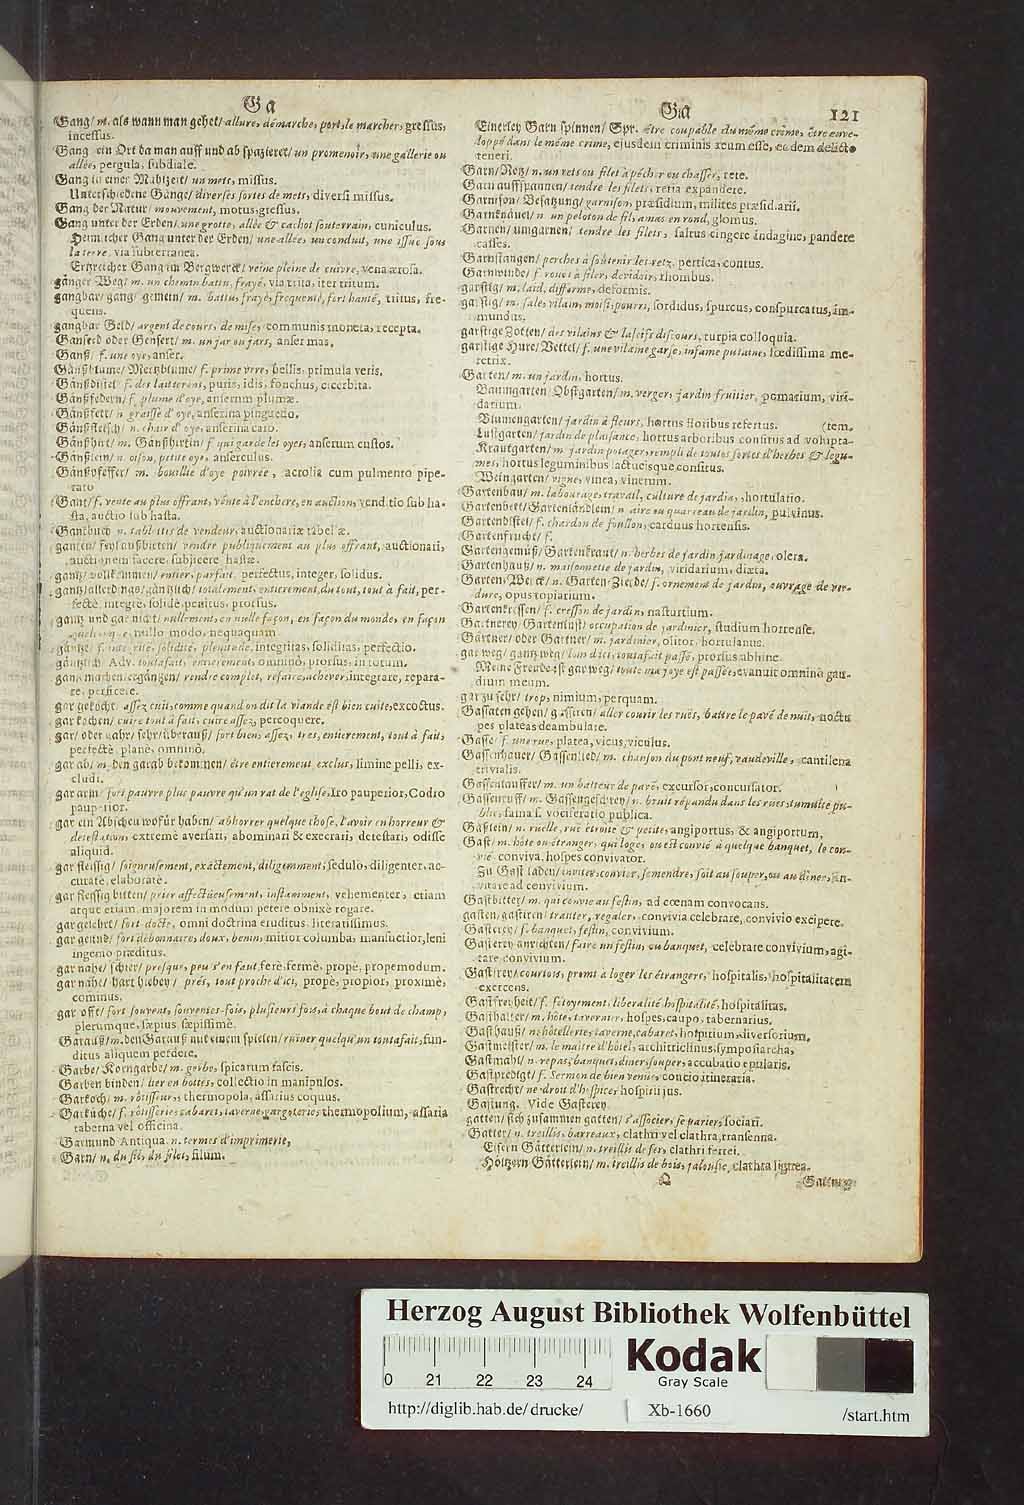 Ga
Gang/ m. als wann man gehet/ allure, démarche, port, le marcher, gressus,
incessus.
Gang ein Ort da man auff und ab spazieret/ un promenoir, une gallerie ou
allée, pergula, subdiale.
Gang in einer Mahlzeit/ un mets, missus.
Unterschiedene Gänge/ diverses sortes de mets, diversi missus.
Gang der Natur/ mouvement, motus, gressus.
Gang unter der Erden/ une grotte, allée & cachot souterrain, cuniculus.
Heimlicher Gang unter der Erden/ une allée, un conduit, une issue sous
la terre, via subterranea.
Ertzreicher Gang im Bergwerck/ veine pleine de cuivre, vena ærosa.
gänger Weg/ m. un chemin batu, frayé, via trita, iter tritum.
gangbar/ gang/ gemein/ m. battu, frayé, frequenté, fort hanté, tritus, fre-
quens.
gangbar Geld/ argent de cours, de mise, communis moneta, recepta.
Ganserd oder Gensert/ m. un jar ou jars, anser mas.
Ganß/ f. une oye, anser.
Gänßblume/ Mertzblume/ f. prime vere, bellis, primula veris.
Gänßdistel f. des laiterons, puris, idis, sonchus, cicerbita.
Gänßfedern/ f. plume d'oye, anserum plumæ.
Gänßfett/ n graisse d'oye, anserina pinguedo.
Gänßfleisch/ n. chair d'oye, anserina caro.
Gänßhirt/ m. Gänßhirtin/ f qui garde les oyes, anserum custos.
Gänßlein/ n. oison, petite oye, anserculus.
Gänßpfeffer/ m. bouillie d'oye poivrée, acrolia cum pulmento pipe-
rato
Gant/ f. vente au plus offrant, vente à l'enchere, en auction, venditio sub ha-
sta, auctio sub hasta.
Gantbuch n. tablettes de vendeur, auctionariæ tabellæ.
ganten/ feyl außbieten/ vendre publiquement au plus offrant, auctionari,
auctionem facere, subjicere hastæ.
gantz/ vollkommen/ entier, parfait, perfectus, integer, solidus.
gantz/ allerdings/ gäntzlich/ totalement, entierement, du tout, tout à fait, per-
fectè, integrè, solidè penitus, prorsus.
gantz und gar nicht/ nullement, en nulle façon, en façon du monde, en façon
quelconque, nullo modo, nequaquam
gäntze/ f. integrité, solidité, plenitude, integritas, soliditas, perfectio.
gäntzlich/ Adv. toutafait, entierement, omninò, prorsus, in totum.
gantz machen/ ergäntzen/ rendre complet, refaire, achever, integrare, repara-
re, perficere.
gar gekocht assez cuit, comme quand on dit la viande est bien cuite, excoctus.
gar kochen/ cuire tout à fait, cuire assez, percoquere.
gar/ oder nahr/ sehr/ überauß/ fort bien, assez, tres, entierement, tout à fait,
perfectè, planè, omninò.
gar ab/ m. den garab bekommen/ être entierement exclus, limine pelli, ex-
cludi.
gar arm fort pauvre plus pauvre qu'un rat de l'eglise, Iro pauperior, Codro
pauperior.
gar ein Abscheu wofür haben/ abhorrer quelque chose, l'avoir en horreur &
detestation, extremè aversari, abominari & execrari, detestari, odisse
aliquid.
gar fleissig/ soigneusement, exactement, diligemment, sedulò, diligenter, ac-
curatè, elaboratè.
gar fleissig bitten/ prier affectueusement, instamment, vehementer, etiam
atque etiam, majorem in modum petere obnixè rogare.
gar gelehrt/ fort docte, omni doctrina eruditus, literatissimus.
gar gelind/ fort debonnaire, doux, benin, mitior columba, mansuetior, leni
ingenio præditus.
gar nahe/ schier/ presque, peu s'en faut, ferè, fermè, propè, propemodum.
gar nahe/ hart hiebey/ prés, tout proche d'ici, propè, propior, proximè,
cominus.
gar offt/ fort souvent, souventes-fois, plusieurs fois, à chaque bout de champ,
plerumque, sæpius, sæpissimè.
Garauß/ m. den Garauß mit einem spielen/ ruiner quelqu'un toutafait, fun-
ditus aliquem perdere.
Garbe/ Korngarbe/ m. gerbe, spicarum fascis.
Garben binden/ lier en bottes, collectio in manipulos.
Garkoch/ m. rôtisseur, thermopola, assarius coquus.
Garküche/ f. rôtisserie, cabaret, taverne, gargoterie, thermopolium, assaria
taberna vel officina.
Garmund Antiqua. n. termes d'imprimerie,
Garn/ n. du fil, du filet, filum.
Ga
121
Einerley Garn spinnen/ Spr. être coupable du même crime, être enve-
loppé dans le même crime, ejusdem criminis reum esse, eodem delicto
teneri.
Garn/ Netz/ n. un rets ou filet à pécher ou chasser, rete.
Garn auffspannen/ tendre les filets, retia expandere.
Garnison/ Besatzung/ garnison, præsidium, milites præsidiarii.
Garnknäuel/ n. un peloton de fil, amas en rond, glomus.
Garnen/ umgarnen/ tendre les filets, saltus cingere indagine, pandere
casses.
Garnstangen/ perches à soûtenir les retz, pertica, contus.
Garnwinde/ f. rouet à filer, devidoir, rhombus.
garstig/ m. laid, difforme, deformis.
garstig/ m. sale, vilain, moisi, pourri, sordidus, spurcus, conspurcatus, im-
mundus.
garstige Zotten/ des vilains & lascifs discours, turpia colloquia.
garstige Hure/ Vettel/ f. une vilaine garse, infame putaine, fœdissima me-
retrix.
Garten/ m. un jardin, hortus.
Baumgarten/ Obstgarten/ m. verger, jardin fruitier, pomarium, viri-
darium.
Blumengarten/ jardin à fleurs, hortus floribus refertus. (tem.
Lustgarten/ jardin de plaisance, hortus arboribus consitus ad volupta-
Krautgarten/ m. jardin potager, rempli de toutes sortes d'herbes & legu-
mes, hortus leguminibus lactucisque consitus.
Weingarten/ vigne, vinea, vinetum.
Gartenbau/ m. labourage, travail, culture de jardin, hortulatio.
Gartenbett/ Gartenländlein/ n. aire ou quarreau de jardin, pulvinus.
Gartendistel/ f. chardon de foullon, carduus hortensis.
Gartenfrucht/ f.
Gartengemüß/ Gartenkraut/ n. herbes de jardin jardinage, olera.
Gartenhauß/ n. maisonnette de jardin, viridarium, diæta.
Garten, Werck/ n. Garten-Zierde/ f. ornement de jardin, ouvrage de ver-
dure, opus topiarium.
Gartenkressen/ f. cresson de jardin, nasturtium.
Gartnerey/ Gartenlust/ occupation de jardinier, studium hortense.
Gärtner/ oder Gartner/ m. jardinier, olitor, hortulanus.
gar weg/ gantz weg/ loin d'ici, toutafait passé, prorsus abhinc.
Meine Freude ist gar weg/ toute ma joye est passée, evanuit omninò gau-
dium meum.
gar zu sehr/ trop, nimium, perquam.
Gassaten gehen/ gassiren/ aller courir les rues, battre le pavé de nuit, noctu
per plateas deambulare.
Gasse/ f. une rue, platea, vicus, viculus.
Gassenhauer/ Gassenlied/ m. chanson du pont neuf, vaudeville, cantilena
trivialis.
Gassenlauffer/ m. un batteur de pavé, excursor, concursator.
Gassenruff/ m. Gassengeschrey/ n. bruit répandu dans les rues, tumulte pu-
blic, fama s. vociferatio publica.
Gäßlein/ n. ruelle, rue étroite & petite, angiportus, & angiportum.
Gast/ m. hôte ou étranger, qui loge, ou est convié à quelque banquet, le con-
vié conviva, hospes convivator.
Zu Gast laden/ inviter, convier, semondre, soit au souper, ou au dîner, in-
vitare ad convivium.
Gastbitter/ m. qui convie au festin, ad cœnam convocans.
gasten/ gastiren traiter, regaler, convivia celebrare, convivio excipere.
Gasterey/ f. banquet, festin, convivium.
Gasterey anrichten/ faire un festin, ou banquet, celebrare convivium, agi-
tare convivium.
Gastfrey/ courtois, promt à loger les étrangers, hospitalis, hospitalitatem
exercens.
Gastfreyheit/ f. fétoyement, liberalité hospitalité, hospitalitas.
Gasthalter/ m. hôte, tavernier, hospes, caupo, tabernarius.
Gasthauß/ n. hôtellerie, taverne, cabaret, hospitium, diversorium.
Gastmeister/ m. le maître d'hôtel, architriclinus, symposiarcha,
Gastmahl/ n. repas, banquet, diner, souper, accubatio epularis.
Gastpredigt/ f. Sermon de bien venue, concio itineraria.
Gastrecht/ n. droit d'hospice, hospitii jus.
Gastung. Vide Gasterey.
gatten/ sich zusammen gatten/ s'associer, se parier, sociari.
Gatter/ n. treillis, barreaux, clathri vel clathra, transenna.
Eisern Gätterlein/ n. treillis de fer, clathri ferrei.
Höltzern Gätterlein/ m. treillis de bois, jalousie, clathra lignea.
Q
Gattung
Herzog August Bibliothek Wolfenbüttel
0 21 22 23 24
Kodak
Gray Scale
http://diglib.hab.de/drucke/
Xb-1660
/start.htm